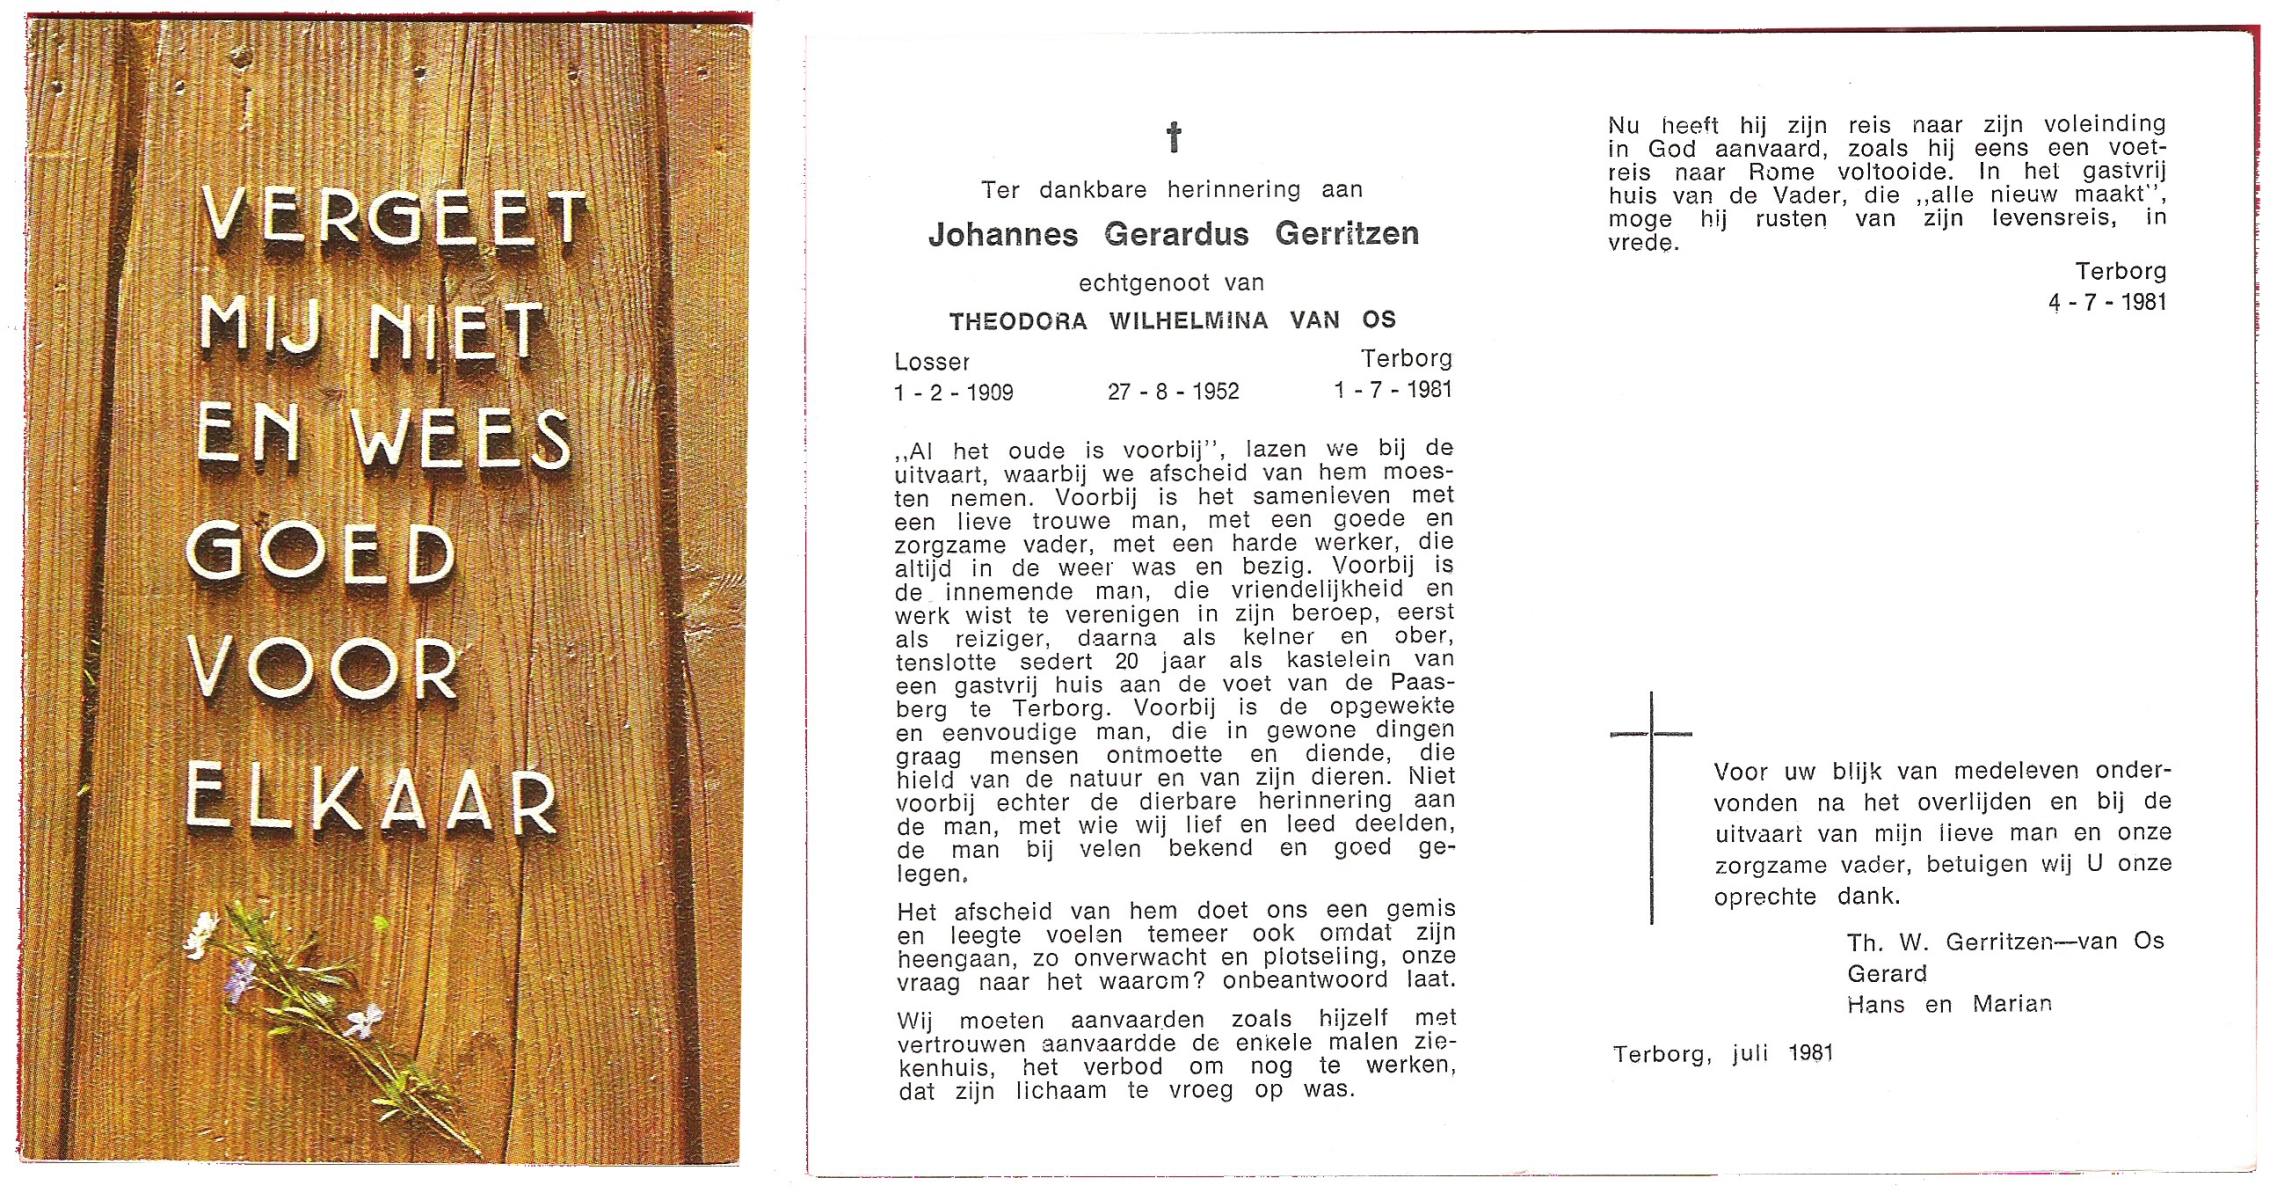 VERGEET
MIJ NIET
EN WEES
GOED
VOOR
ELKAAR
Ter dankbare herinnering aan
Johannes Gerardus Gerritzen
echtgenoot van
THEODORA WILHELMINA VAN OS
Losser Terborg
1 - 2 - 1909 27 - 8 - 1952 1 - 7 - 1981
,,Al het oude is voorbij'', lazen we bij de
uitvaart, waarbij we afscheid van hem moes-
ten nemen. Voorbij is het samenleven met
een lieve trouwe man, met een goede en
zorgzame vader, met een harde werker, die
altijd in de weer was en bezig. Voorbij is
de innemende man, die vriendelijkheid en
werk wist te verenigen in zijn beroep, eerst
als reiziger, daarna als kelner en ober,
tenslotte sedert 20 jaar als kastelein van
een gastvrij huis aan de voet van de Paas-
berg te Terborg. Voorbij is de opgewekte
en eenvoudige man, die in gewone dingen
graag mensen ontmoette en diende, die
hield van de natuur en van zijn dieren. Niet
voorbij echter de dierbare herinnering aan
de man, met wie wij lief en leed deelden,
de man bij velen bekend en goed ge-
legen.
Het afscheid van hem doet ons een gemis
en leegte voelen temeer ook omdat zijn
heengaan, zo onverwacht en plotseling, onze
vraag naar het waarom? onbeantwoord laat.
Wij moeten aanvaarden zoals hijzelf met
vertrouwen aanvaardde de enkele malen zie-
kenhuis, het verbod om nog te werken,
dat zijn lichaam te vroeg op was.
Nu heeft hij zijn reis naar zijn voleinding
in God aanvaard, zoals hij eens een voet-
reis naar Rome voltooide. In het gastvrij
huis van de Vader, die ,,alle nieuw maakt'',
moge hij rusten van zijn levensreis, in
vrede.
Terborg
4 - 7 - 1981
Voor uw blijk van medeleven onder-
vonden na het overlijden en bij de
uitvaart van mijn lieve man en onze
zorgzame vader, betuigen wij U onze
oprechte dank.
Th. W. Gerritzen—van Os
Gerard
Hans en Marian
Terborg, juli 1981